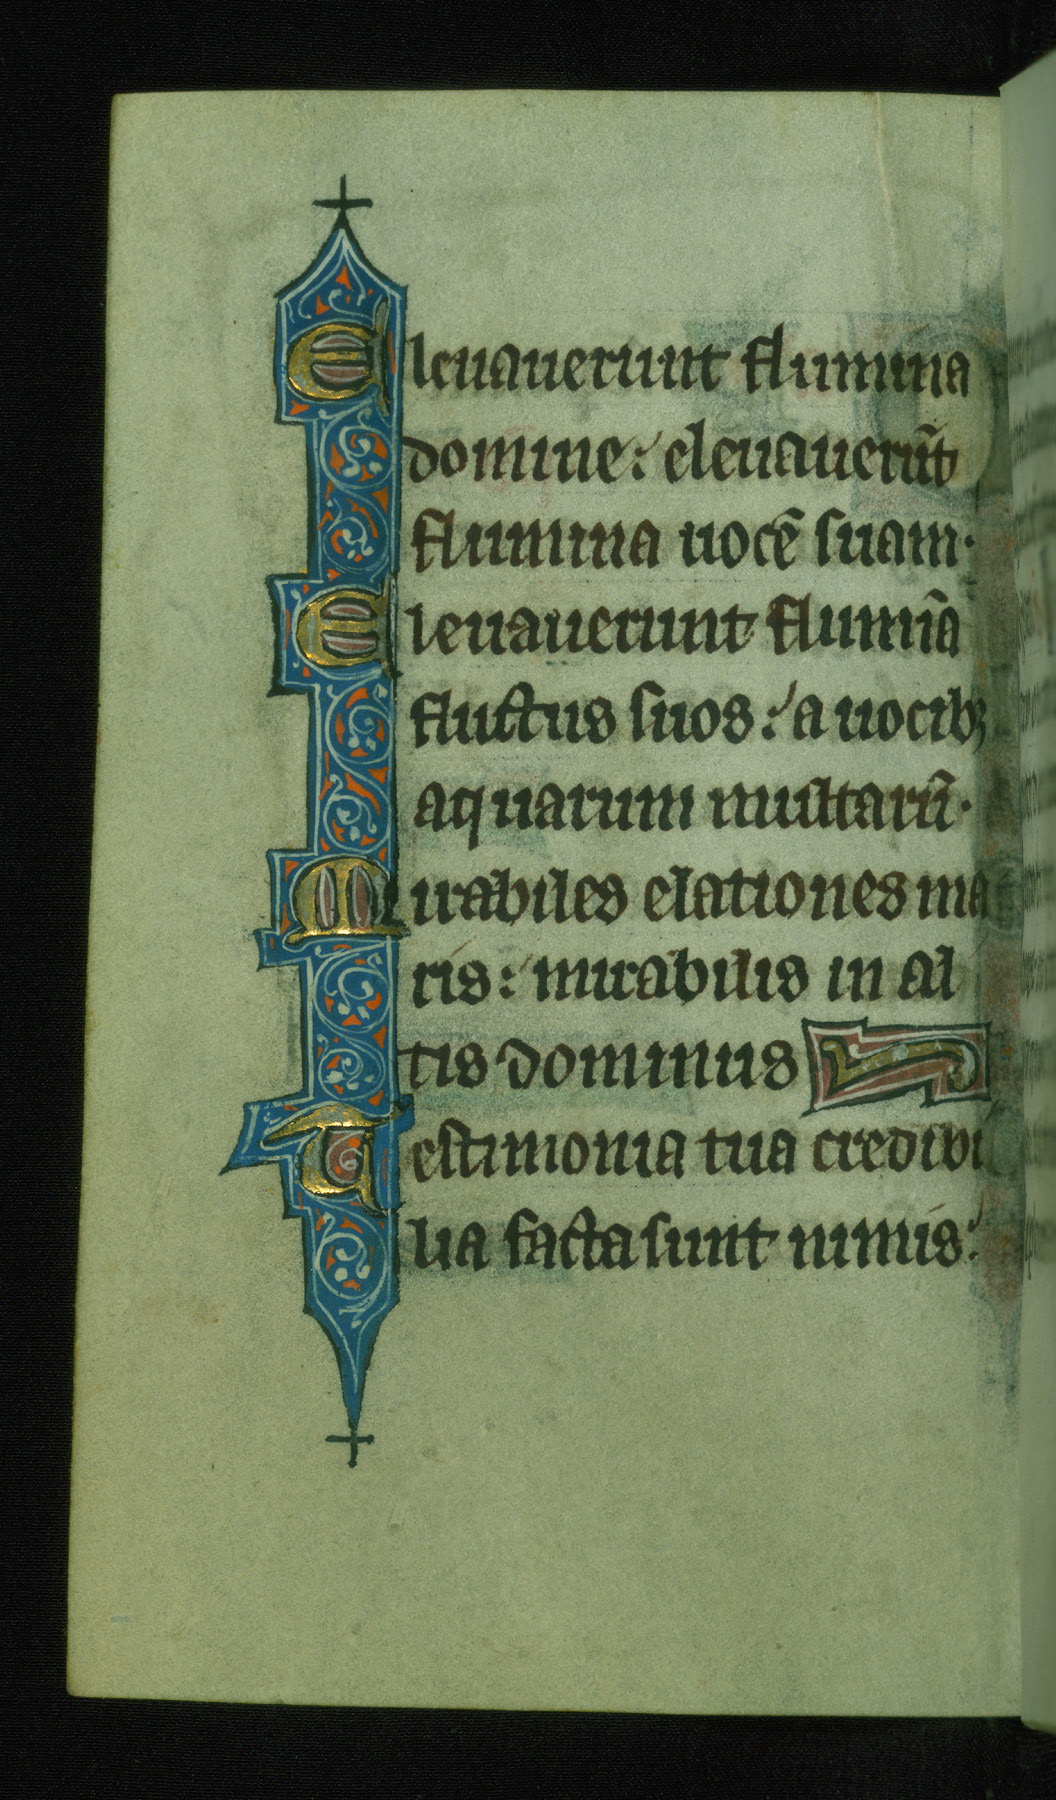 Eleuauerunt flumina
domine: eleuauerūt
flumina uocē suam·
Eleuauerunt flumīa
fluctus suos: a uocibꝫ
aquarum multarū·
Mirabiles elationes ma
ris: mirabilis in al
tis dominus
Testimonia tua credibi
lia facta sunt nimis: